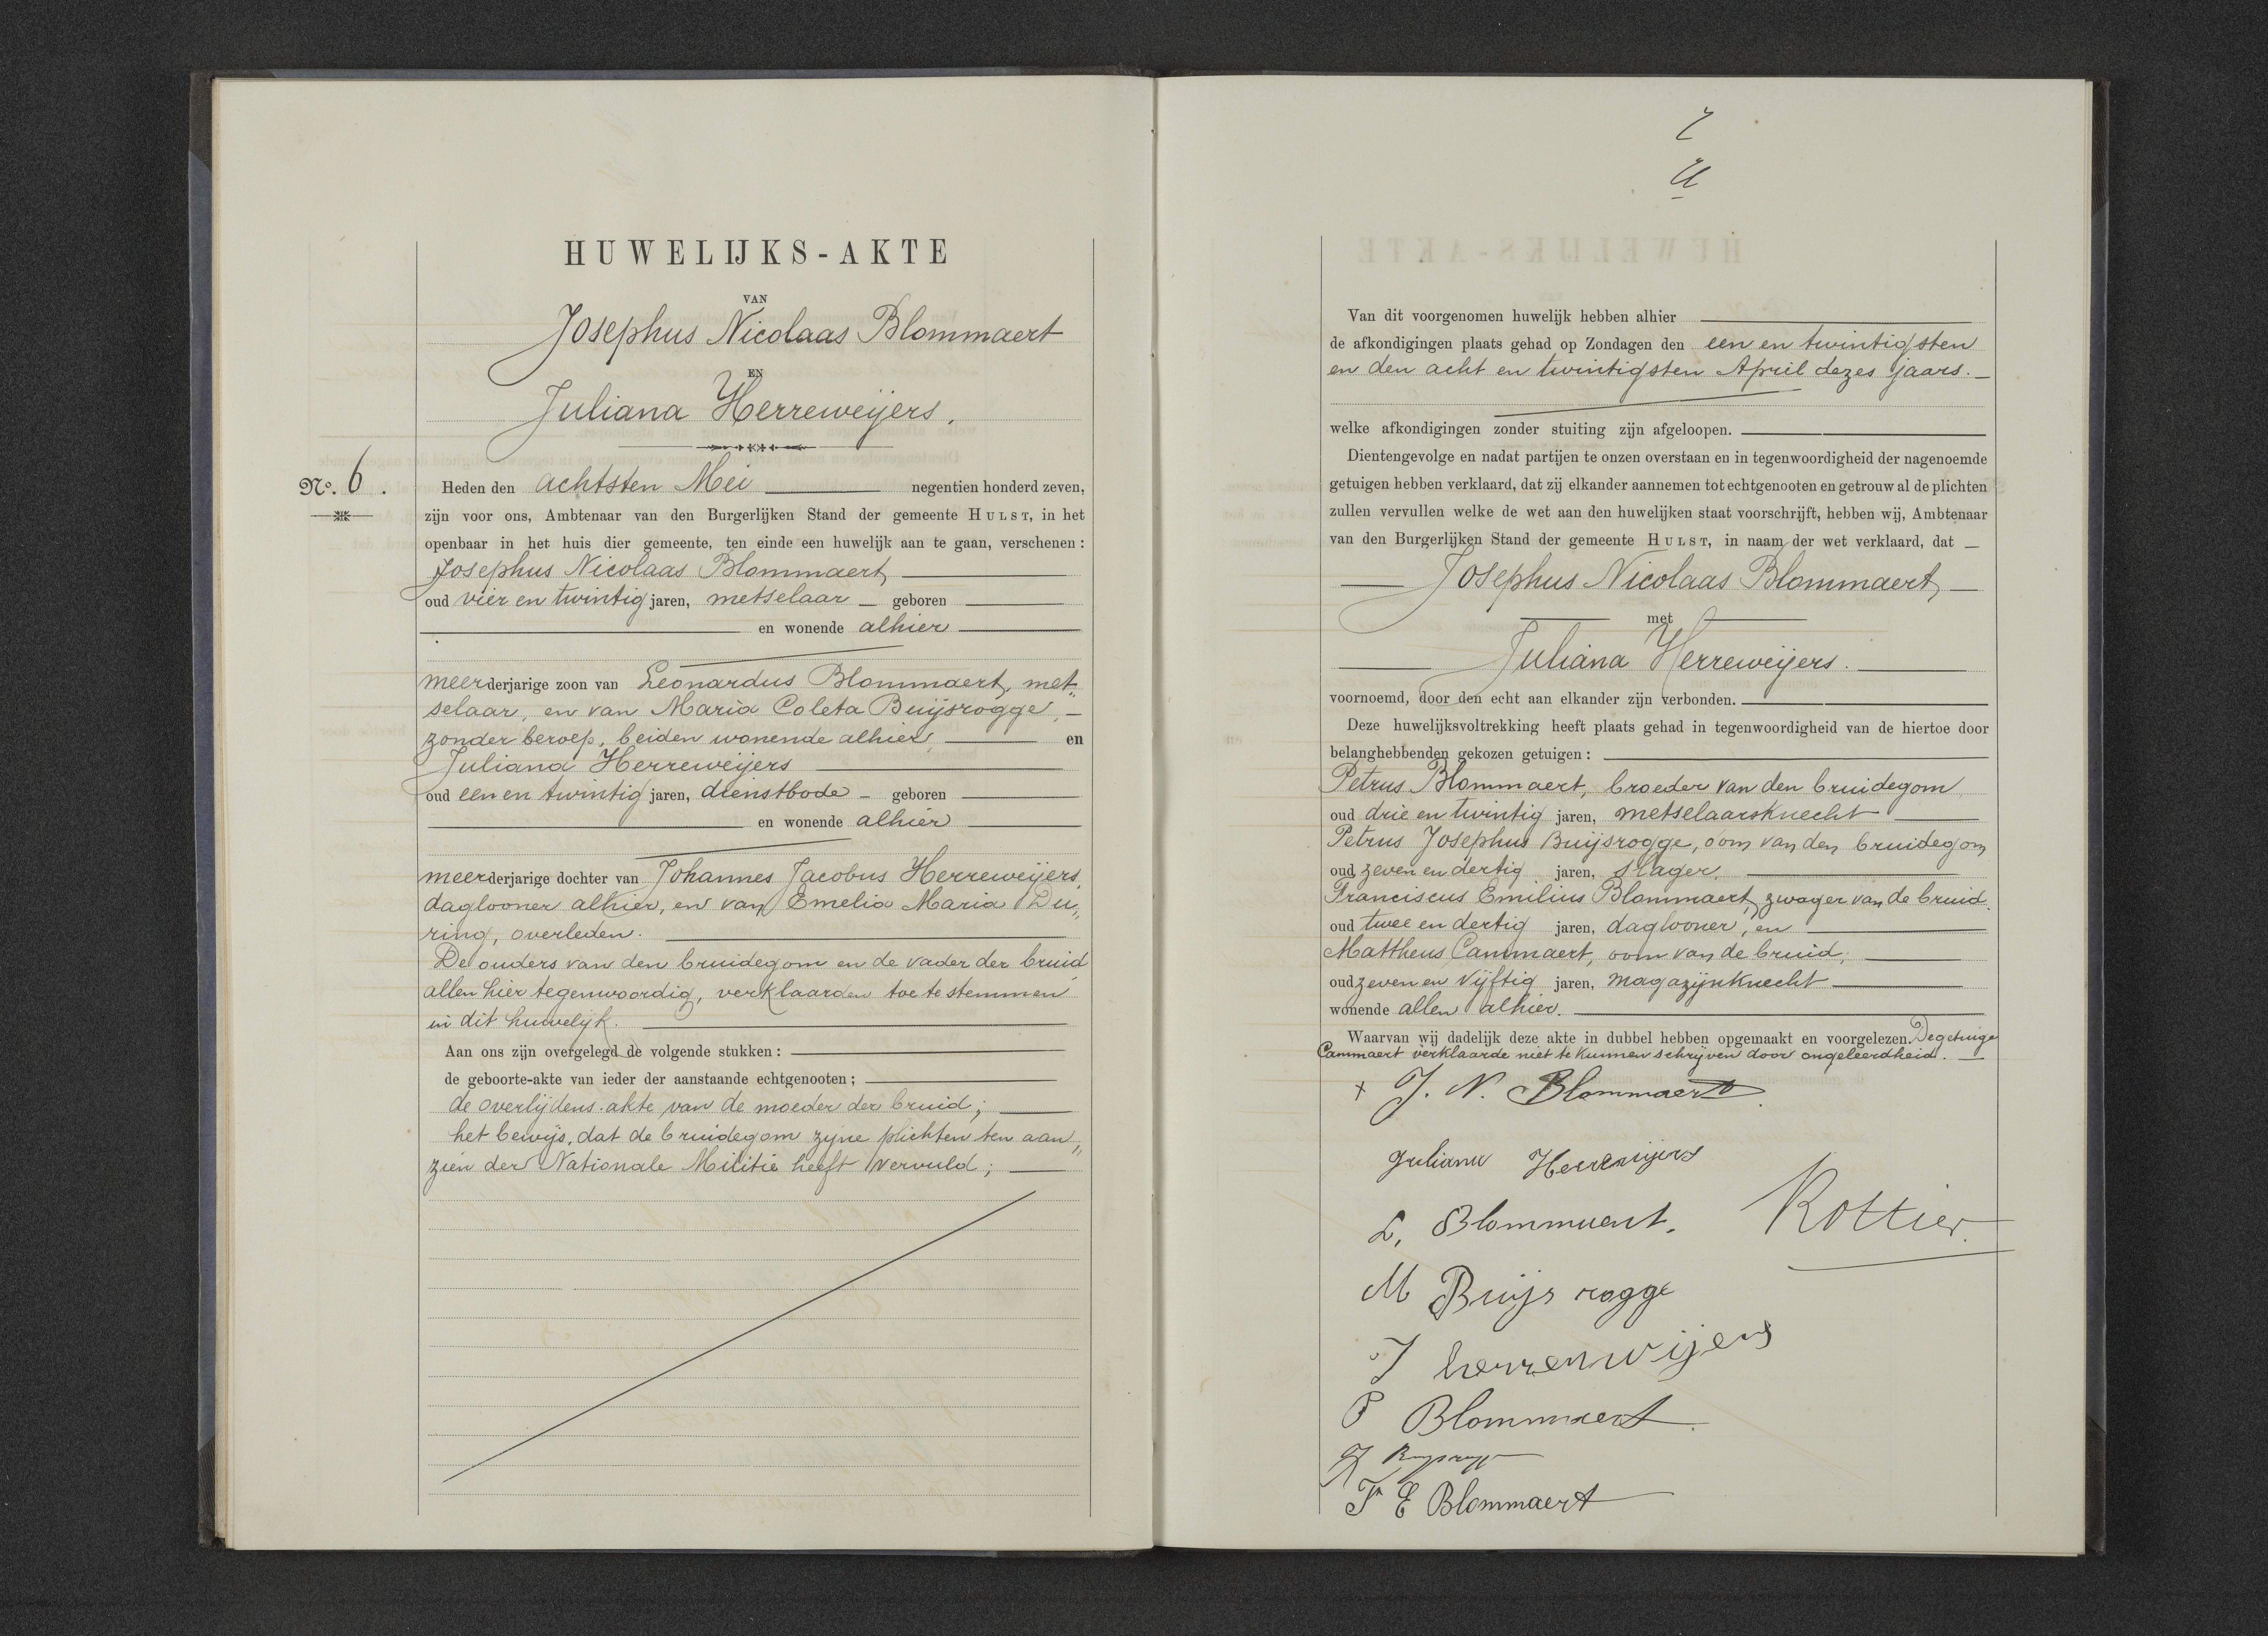 HUWELIJKS-AKTE
VAN
Josephus Nicolaas Blommaert
EN
Juliana Herreweijers.
No. 6.
Heden den achtsten Mei negentien honderd zeven,
zijn voor ons, Ambtenaar van den Burgerlijken Stand der gemeente HULST, in het
openbaar in het huis dier gemeente, ten einde een huwelijk aan te gaan, verschenen:
Josephus Nicolaas Blommaert,
oud vier en twintig jaren, metselaar geboren
en wonende alhier
meerderjarige zoon van Leonardus Blommaert, met„
selaar, en van Maria Coleta Buijsrogge,
zonder beroep, beiden wonende alhier, en
Juliana Herreweijers
oud een en twintig jaren, dienstbode geboren
en wonende alhier
meerderjarige dochter van Johannes Jacobus Herreweijers,
daglooner alhier, en van Emelia Maria Du„
ring, overleden.
De ouders van den bruidegom en de vader der bruid
allen hier tegenwoordig, verklaarden toe te stemmen
in dit huwelijk.
Aan ons zijn overgelegd de volgende stukken:
de geboorte-akte van ieder der aanstaande echtgenooten;
de overlijdens-akte van de moeder der bruid;
het bewijs, dat de bruidegom zijne plichten ten aan„
zien der Nationale Militie heeft vervuld;
Van dit voorgenomen huwelijk hebben alhier
de afkondigingen plaats gehad op Zondagen den een en twintigsten
en den acht en twintigsten April dezes jaars.
welke afkondigingen zonder stuiting zijn afgeloopen.
Dientengevolge en nadat partijen te onzen overstaan en in tegenwoordigheid der nagenoemde
getuigen hebben verklaard, dat zij elkander aannemen tot echtgenooten en getrouw al de plichten
zullen vervullen welke de wet aan den huwelijken staat voorschrijft, hebben wij, Ambtenaar
van den Burgerlijken Stand der gemeente HULST, in naam der wet verklaard, dat
Josephus Nicolaas Blommaert,
met
Juliana Herreweijers.
voornoemd, door den echt aan elkander zijn verbonden.
Deze huwelijksvoltrekking heeft plaats gehad in tegenwoordigheid van de hiertoe door
belanghebbenden gekozen getuigen:
Petrus Blommaert, broeder van den bruidegom
oud drie en twintig jaren, metselaarsknecht
Petrus Josephus Buijsrogge, oom van den bruidegom
oud zeven en dertig jaren, slager,
Franciscus Emilius Blommaert, zwager van de bruid.
oud twee en dertig jaren, daglooner, en
Mattheus Cammaert, oom van de bruid,
oud zeven en vijftig jaren, magazijnknecht
wonende allen alhier.
Waarvan wij dadelijk deze akte in dubbel hebben opgemaakt en voorgelezen. De getuige
Cammaert verklaarde niet te kunnen schrijven door ongeleerdheid.
J. N. Blommaert
Juliana Herreweijers
L. Blommaert. Rottier
M Buijs rogge
J herrenwijers
P Blommaert
F E Blommaert